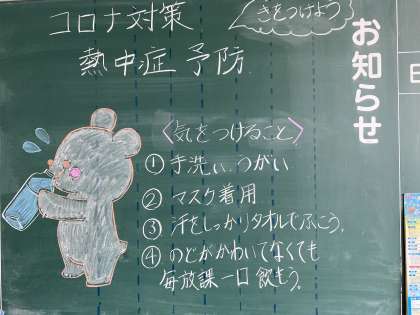 コロナ対策
熱中症 予防
きをつけよう
お知らせ
〈気をつけること〉
① 手洗い、うがい
② マスク着用
③ 汗をしっかりタオルでふこう。
④ のどがかわいてなくても
毎放課一口 飲もう。